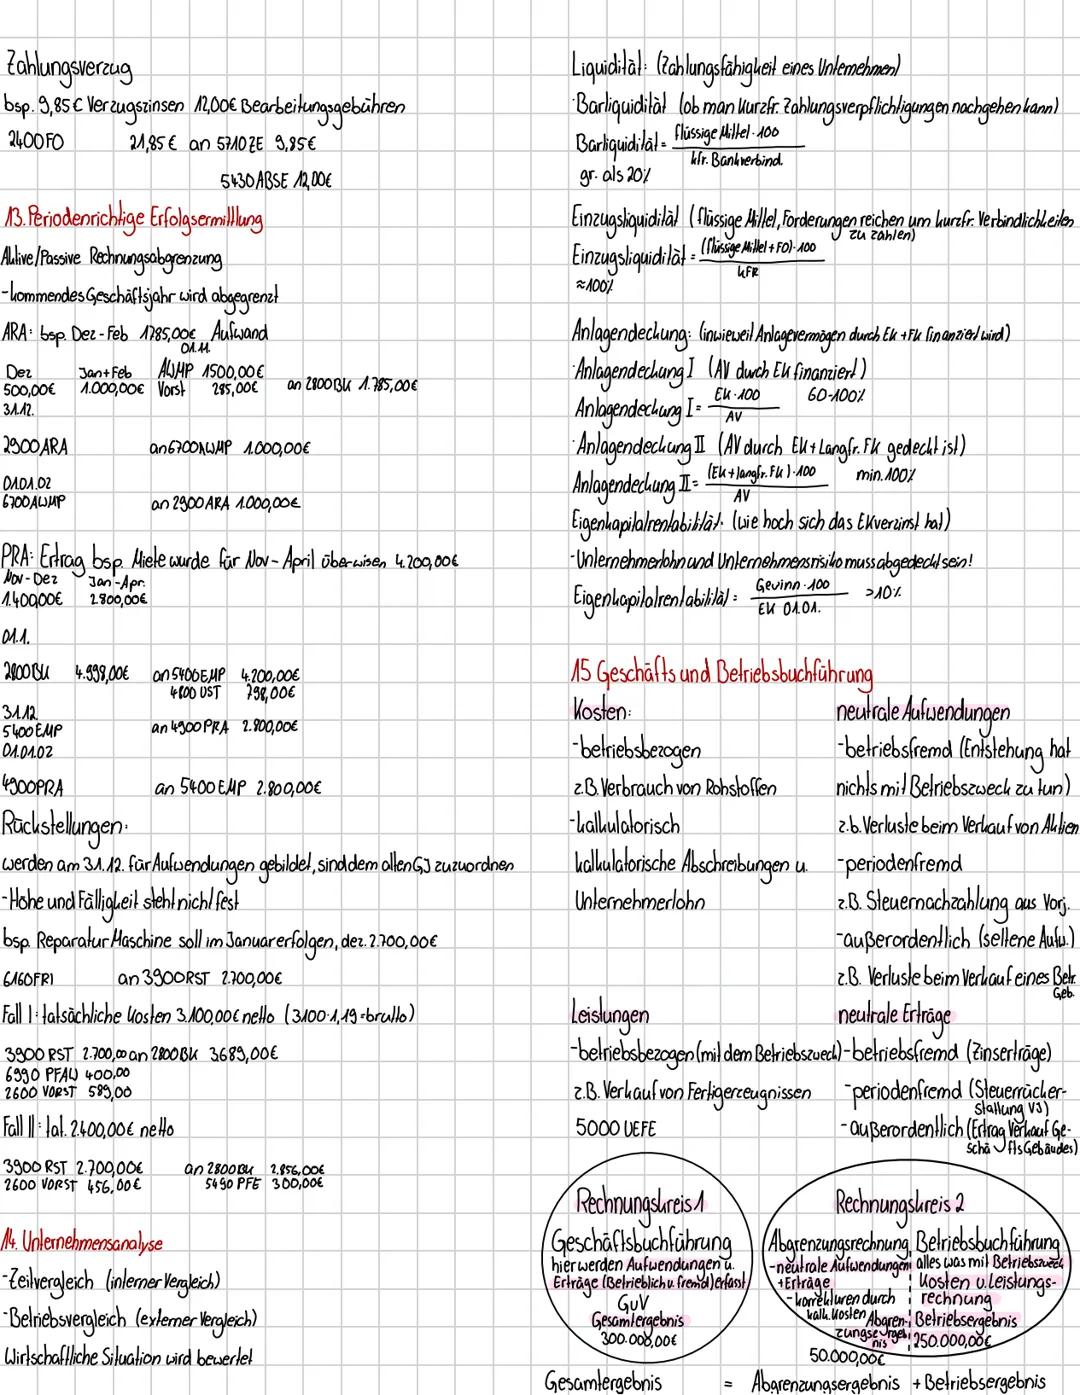 Zahlungsverzug
bsp. 9,85€ Verzugszinsen 12,00€ Bearbeitungsgebühren
2400FO 21,85€ an 5710ZE 9,85€
5430ABSE 12,00€
13. Periodenrichtige Erfolgsermittlung
Aktive/Passive Rechnungsabgrenzung
-kommendes Geschäftsjahr wird abgegrenzt
ARA: bsp. Dez-Feb 1785,00€ Aufwand
01.11.
Dez Jan+Feb AWMP 1500,00€
500,00€ 1.000,00€ Vorst 285,00€ an 2800BK 1.785,00€
31.12.
2900ARA an6700AWMP 1.000,00€
01.01.02
6700AWMP an 2900ARA 1.000,00€
PRA: Ertrag bsp. Miete wurde für Nov-April überwisen 4.200,00€
Nov-Dez Jan-Apr.
1.400,00€ 2.800,00€
01.1.
2800BK 4.998,00€ an5400EMP 4.200,00€
4800 UST 798,00€
31.12.
5400EMP an4900PRA 2.800,00€
01.01.02
4900PRA an 5400EMP 2.800,00€
Rückstellungen:
werden am 31.12. für Aufwendungen gebildet, sind dem alten GJ zuzuordnen
-Höhe und Fälligkeit steht nicht fest
bsp. Reparatur Maschine soll im Januar erfolgen, dez. 2.700,00€
6160FRI an3900RST 2.700,00€
Fall I: tatsächliche Kosten 3.100,00€ netto (3100·1,19=brutto)
3900 RST 2.700,00 an 2800BK 3689,00€
6990 PFAW 400,00
2600 VORST 589,00
Fall II: tat. 2.400,00€ netto
3900 RST 2.700,00€ an 2800BK 2.856,00€
2600 VORST 456,00€ 5490 PFE 300,00€
14. Unternehmensanalyse
-Zeitvergleich (interner Vergleich)
-Betriebsvergleich (externer Vergleich)
Wirtschaftliche Situation wird bewertet
Liquidität: (Zahlungsfähigkeit eines Unternehmen)
·Barliquidität (ob man kurzfr. Zahlungsverpflichtigungen nachgehen kann)
Barliquidität = flüssige Mittel·100
kfr. Bankverbind.
gr. als 20%
Einzugsliquidität (flüssige Mittel, Forderungen reichen um kurzfr. Verbindlichkeiten
zu zahlen)
Einzugsliquidität = (flüssige Mittel + FO)·100
KFR
≈100%
Anlagendeckung: (inwieweit Anlagevermögen durch EK + FK finanziert wird)
·Anlagendeckung I (AV durch EK finanziert)
Anlagendeckung I = EK·100 60-100%
AV
·Anlagendeckung II (AV durch EK + Langfr. FK gedeckt ist)
Anlagendeckung II = (EK + langfr. FK)·100 min. 100%
AV
Eigenkapitalrentabilität: (wie hoch sich das EK verzinst hat)
-Unternehmerlohn und Unternehmensrisiko muss abgedeckt sein!
Eigenkapitalrentabilität = Gewinn·100 >10%
EK 01.01.
15 Geschäfts und Betriebsbuchführung
Kosten: neutrale Aufwendungen
-betriebsbezogen -betriebsfremd (Entstehung hat
z.B. Verbrauch von Rohstoffen nichts mit Betriebszweck zu tun)
-kalkulatorisch z.b. Verluste beim Verkauf von Aktien
kalkulatorische Abschreibungen u. -periodenfremd
Unternehmerlohn z.B. Steuernachzahlung aus Vorj.
-außerordentlich (seltene Aufw.)
z.B. Verluste beim Verkauf eines Betr.
Geb.
Leistungen neutrale Erträge
-betriebsbezogen (mit dem Betriebszweck) -betriebsfremd (Zinserträge)
z.B. Verkauf von Fertigerzeugnissen -periodenfremd (Steuerrücker-
stattung VJ)
5000 UEFE -außerordentlich (Ertrag Verkauf Ge-
schäftsGebäudes)
Rechnungskreis 1
Geschäftsbuchführung
hier werden Aufwendungen u.
Erträge (Betrieblich u. fremd) erfasst
GuV
Gesamtergebnis
300.000,00€
Rechnungskreis 2
Abgrenzungsrechnung
-neutrale Aufwendungen
+Erträge
-korrekturen durch
kalk. Kosten
Abgren-
zungsergeb-
nis
50.000,00€
Betriebsbuchführung
alles was mit Betriebszweck
Kosten u. Leistungs-
rechnung
Betriebsergebnis
250.000,00€
Gesamtergebnis = Abgrenzungsergebnis + Betriebsergebnis